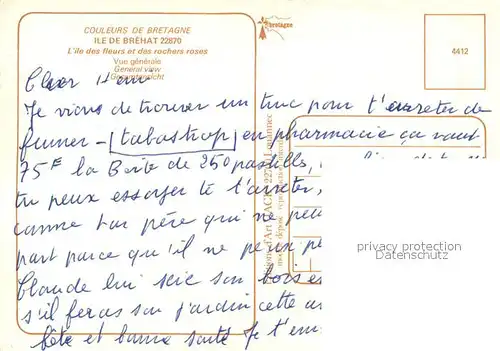 COULEURS DE BRETAGNE
ILE DE BRÉHAT 22870
L'île des fleurs et des rochers roses
Vue générale
General view
Gesamtansicht
bretagne
4412
Cher
Je viens de trouver un truc pour t'arreter de
fumer - (tabastop) en pharmacie ça vaut
75F la Boite de 250 pastilles,
tu peux essayer te t'arreter,
comme ton père qui ne peu
part parce qu'il ne peux pe
Claude lui scie son bois es
s'il feras son jardin cette an
fête et bonne santé Je t'em
privacy protection
Datenschutz